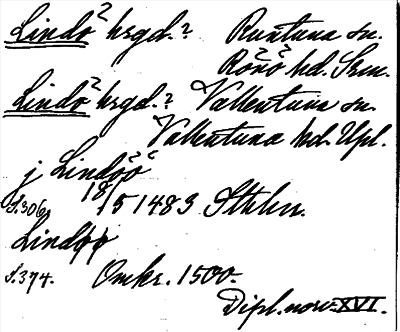 Lindö hrgd.? Runtuna sn.
Rönö hd. Srm.
Lindö hrgd.? Vallentuna sn.
Vallentuna hd. Upl.
j Lindöö
s.306. 18/5 1483 Sthlm.
Lindöö
s.374. Omkr. 1500.
Dipl. norv. XVI.